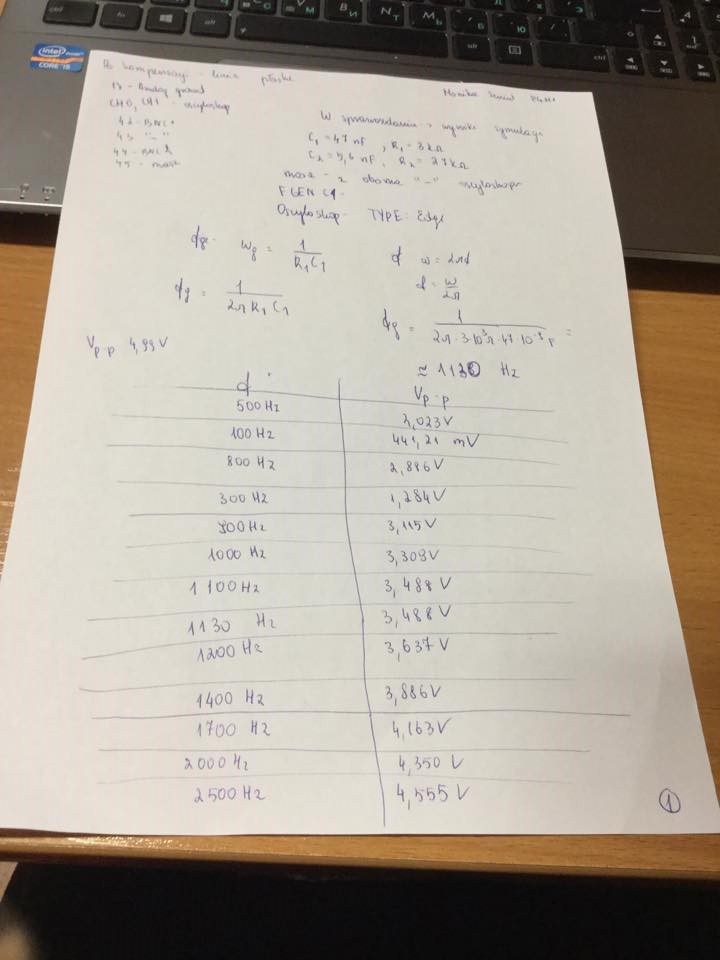 intel
CORE i5
ctrl
alt
Po kompensacji - linia płaska
13 - Analog ground
CH0, CH1 - oscyloskop
42 - BNC1
43 "-"
44 - BNC2
45 - masa
Monika
W sprawozdaniu → wyniki symulacji
C₁ = 47 nF , R₁ = 3 kΩ
C₂ = 5,6 nF , R₂ = 27 kΩ
masa - z oboma "-" oscyloskopu
FGEN
Oscyloskop - TYPE: Edge
fg. ωg = 1/(R₁C₁)
f ω = 2πf
f = ω/2π
fg = 1/(2π R₁ C₁)
fg = 1/(2π · 3·10³Ω · 47·10⁻⁹ F) =
≈ 1130 Hz
Vp-p 4,99V
f Vp-p
500 Hz 2,023V
100 Hz 441,21 mV
800 Hz 2,886V
300 Hz 1,284V
900 Hz 3,115V
1000 Hz 3,309V
1100 Hz 3,488V
1130 Hz 3,488V
1200 Hz 3,637V
1400 Hz 3,886V
1700 Hz 4,163V
2000 Hz 4,350 V
2500 Hz 4,555 V
1